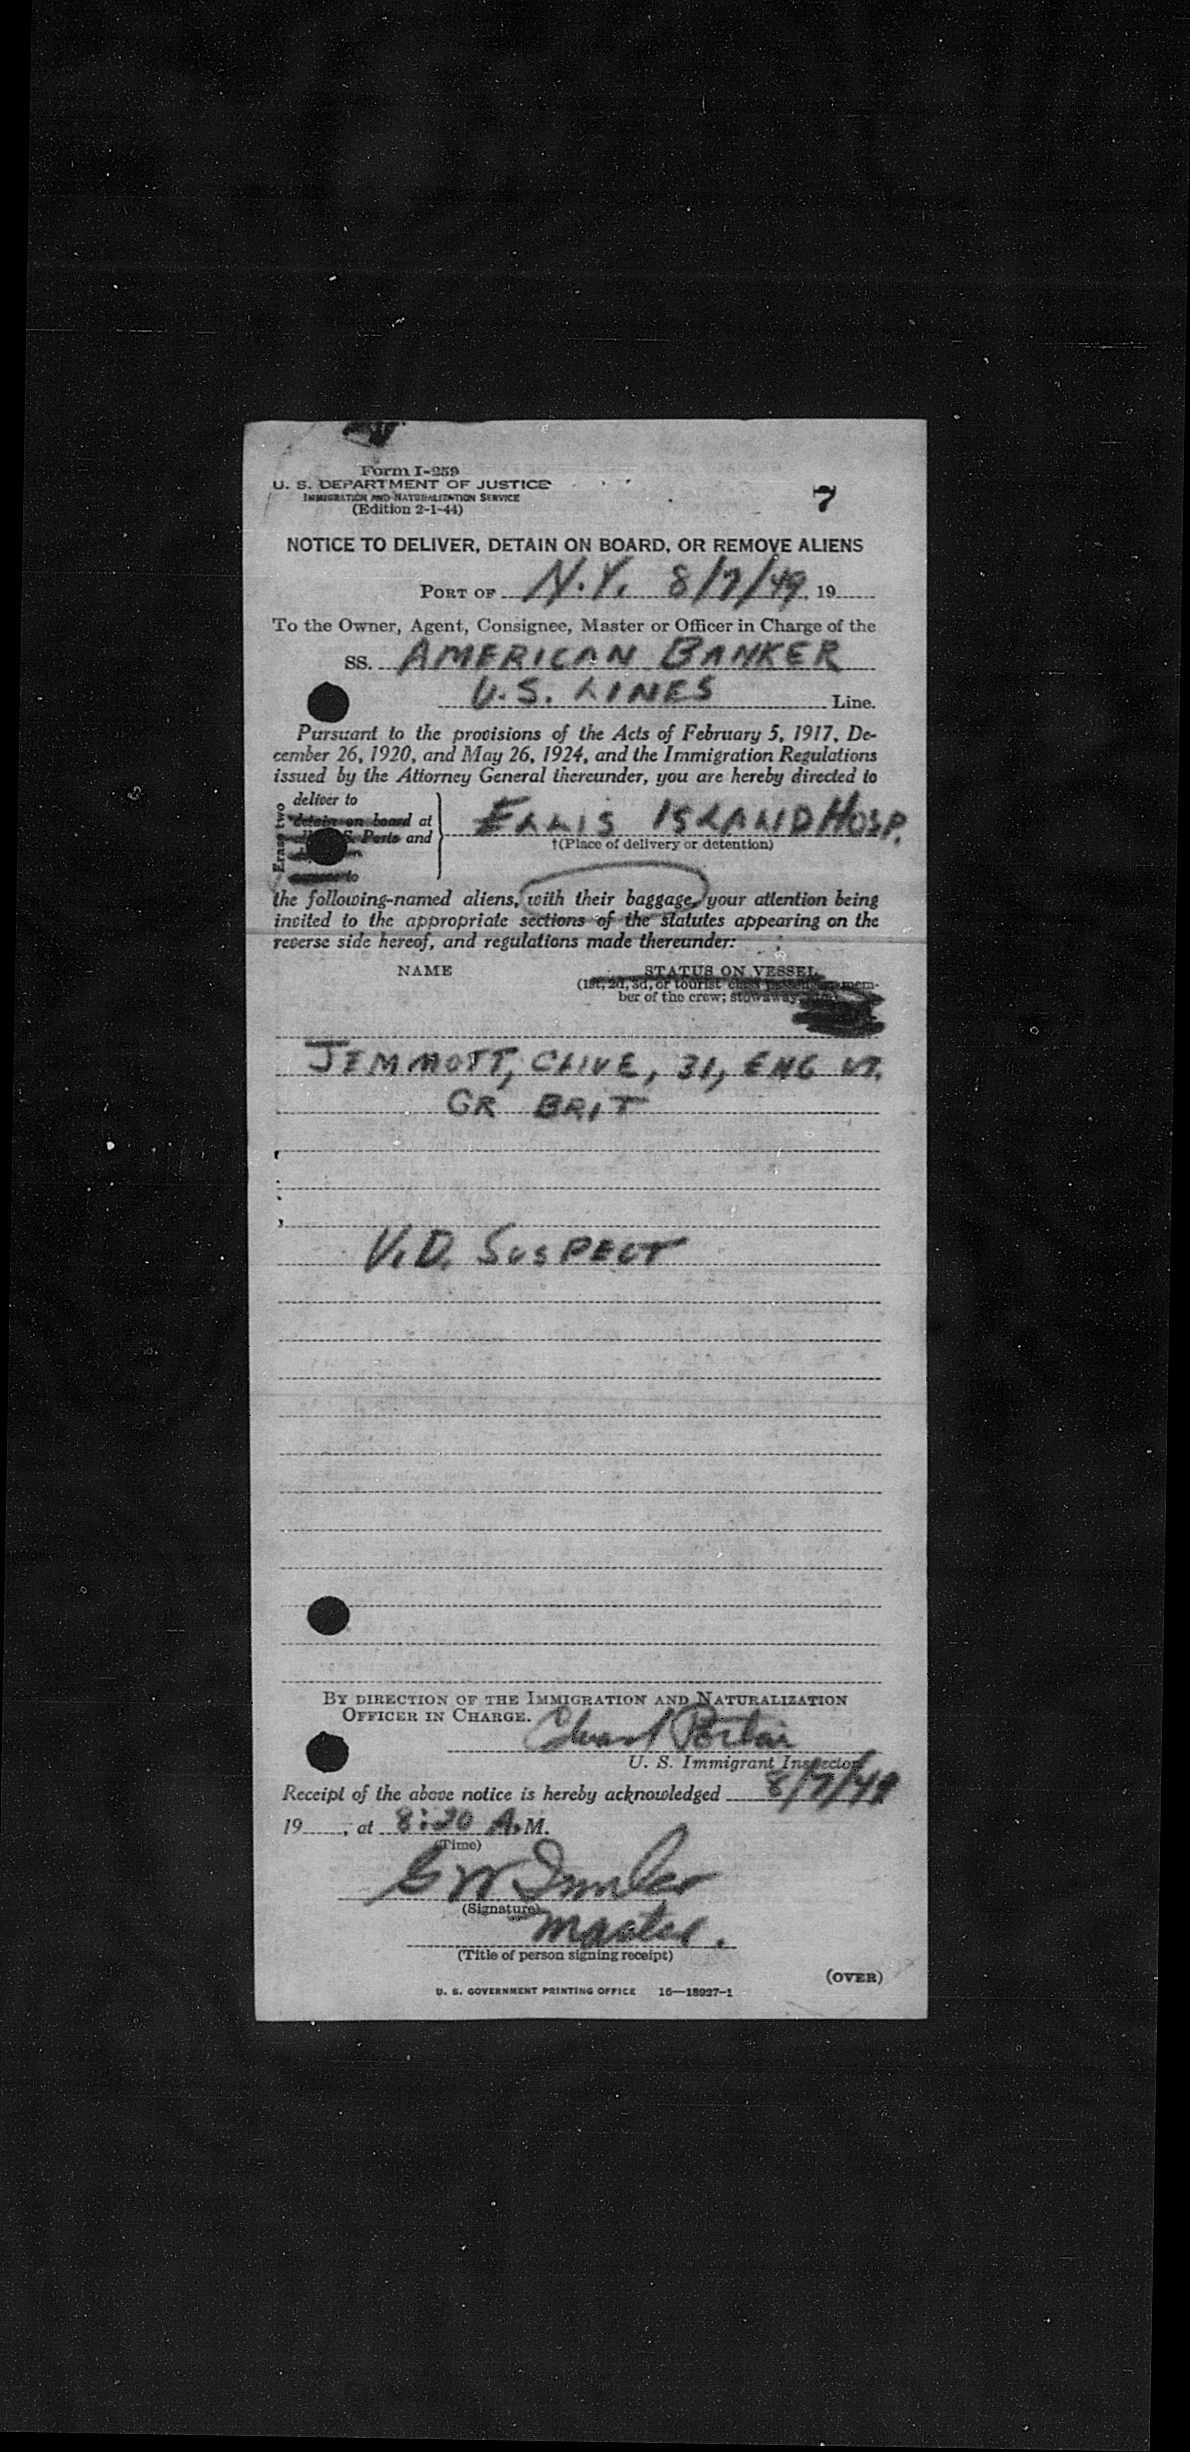 Form I-259
U. S. DEPARTMENT OF JUSTICE
IMMIGRATION AND NATURALIZATION SERVICE
(Edition 2-1-44)
7
NOTICE TO DELIVER, DETAIN ON BOARD, OR REMOVE ALIENS
PORT OF N.Y. 8/7/49, 19
To the Owner, Agent, Consignee, Master or Officer in Charge of the
SS. AMERICAN BANKER
U.S. LINES Line.
Pursuant to the provisions of the Acts of February 5, 1917, De-
cember 26, 1920, and May 26, 1924, and the Immigration Regulations
issued by the Attorney General thereunder, you are hereby directed to
Erase two
deliver to
detain on board at
S. Ports and
ELLIS ISLAND HOSP.
†(Place of delivery or detention)
remove to
the following-named aliens, with their baggage, your attention being
invited to the appropriate sections of the statutes appearing on the
reverse side hereof, and regulations made thereunder:
NAME
STATUS ON VESSEL
(1st, 2d, 3d, or tourist class passenger; mem-
ber of the crew; stowaway,
JEMMOTT, CLIVE, 31, ENG UT.
GR BRIT
V.D. SUSPECT
BY DIRECTION OF THE IMMIGRATION AND NATURALIZATION
OFFICER IN CHARGE.
U. S. Immigrant Inspector
Receipt of the above notice is hereby acknowledged 8/7/49
19 , at 8:20 A.M.
(Time)
G W
(Signature)
Master.
(Title of person signing receipt)
(OVER)
U. S. GOVERNMENT PRINTING OFFICE 16—18927-1